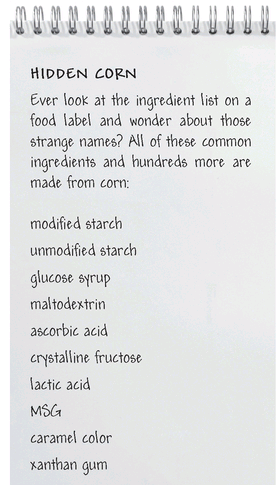 HIDDEN CORN
Ever look at the ingredient list on a
food label and wonder about those
strange names? All of these common
ingredients and hundreds more are
made from corn:
modified starch
unmodified starch
glucose syrup
maltodextrin
ascorbic acid
crystalline fructose
lactic acid
MSG
caramel color
xanthan gum